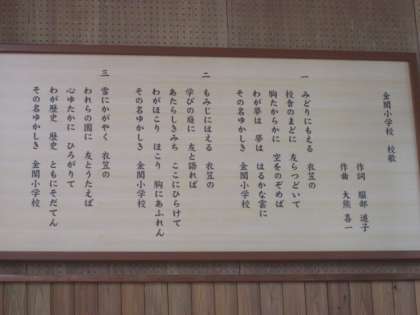 金閣小学校 校歌
作詞 服部 道子
作曲 大熊 喜一
一
みどりにもえる 衣笠の
校舎のまどに 友らつどいて
胸たからかに 空をのぞめば
わが夢は 夢は はるかな雲に
その名ゆかしき 金閣小学校
二
もみじにはえる 衣笠の
学びの庭に 友と語れば
あたらしきみち ここにひらけて
わがほこり ほこり 胸にあふれん
その名ゆかしき 金閣小学校
三
雪にかがやく 衣笠の
われらの園に 友とうたえば
心ゆたかに ひろがりて
わが歴史 歴史 ともにそだてん
その名ゆかしき 金閣小学校